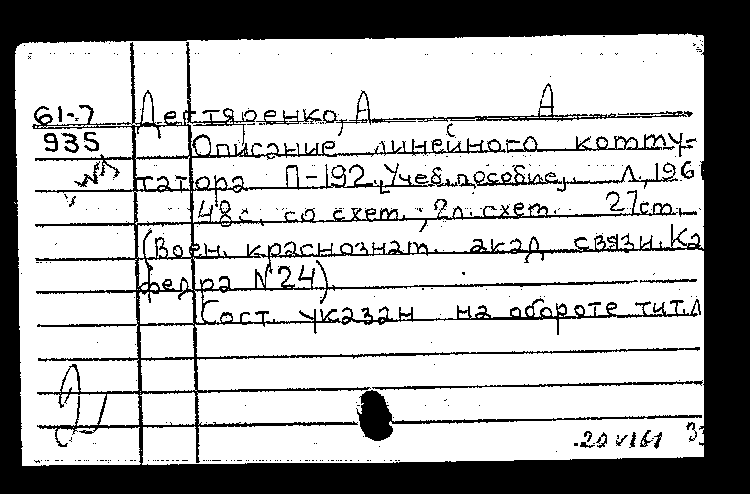 61-7 Дегтяренко, А А
935 Описание линейного комму-
татора П-192. [Учеб. пособие]. Л., 1961
48 с. со схем.; 2 л. схем. 27 см.
(Воен. краснознам. акад. связи. Ка
федра №24).
Сост. указан на обороте тит. л
20 VI 61 33